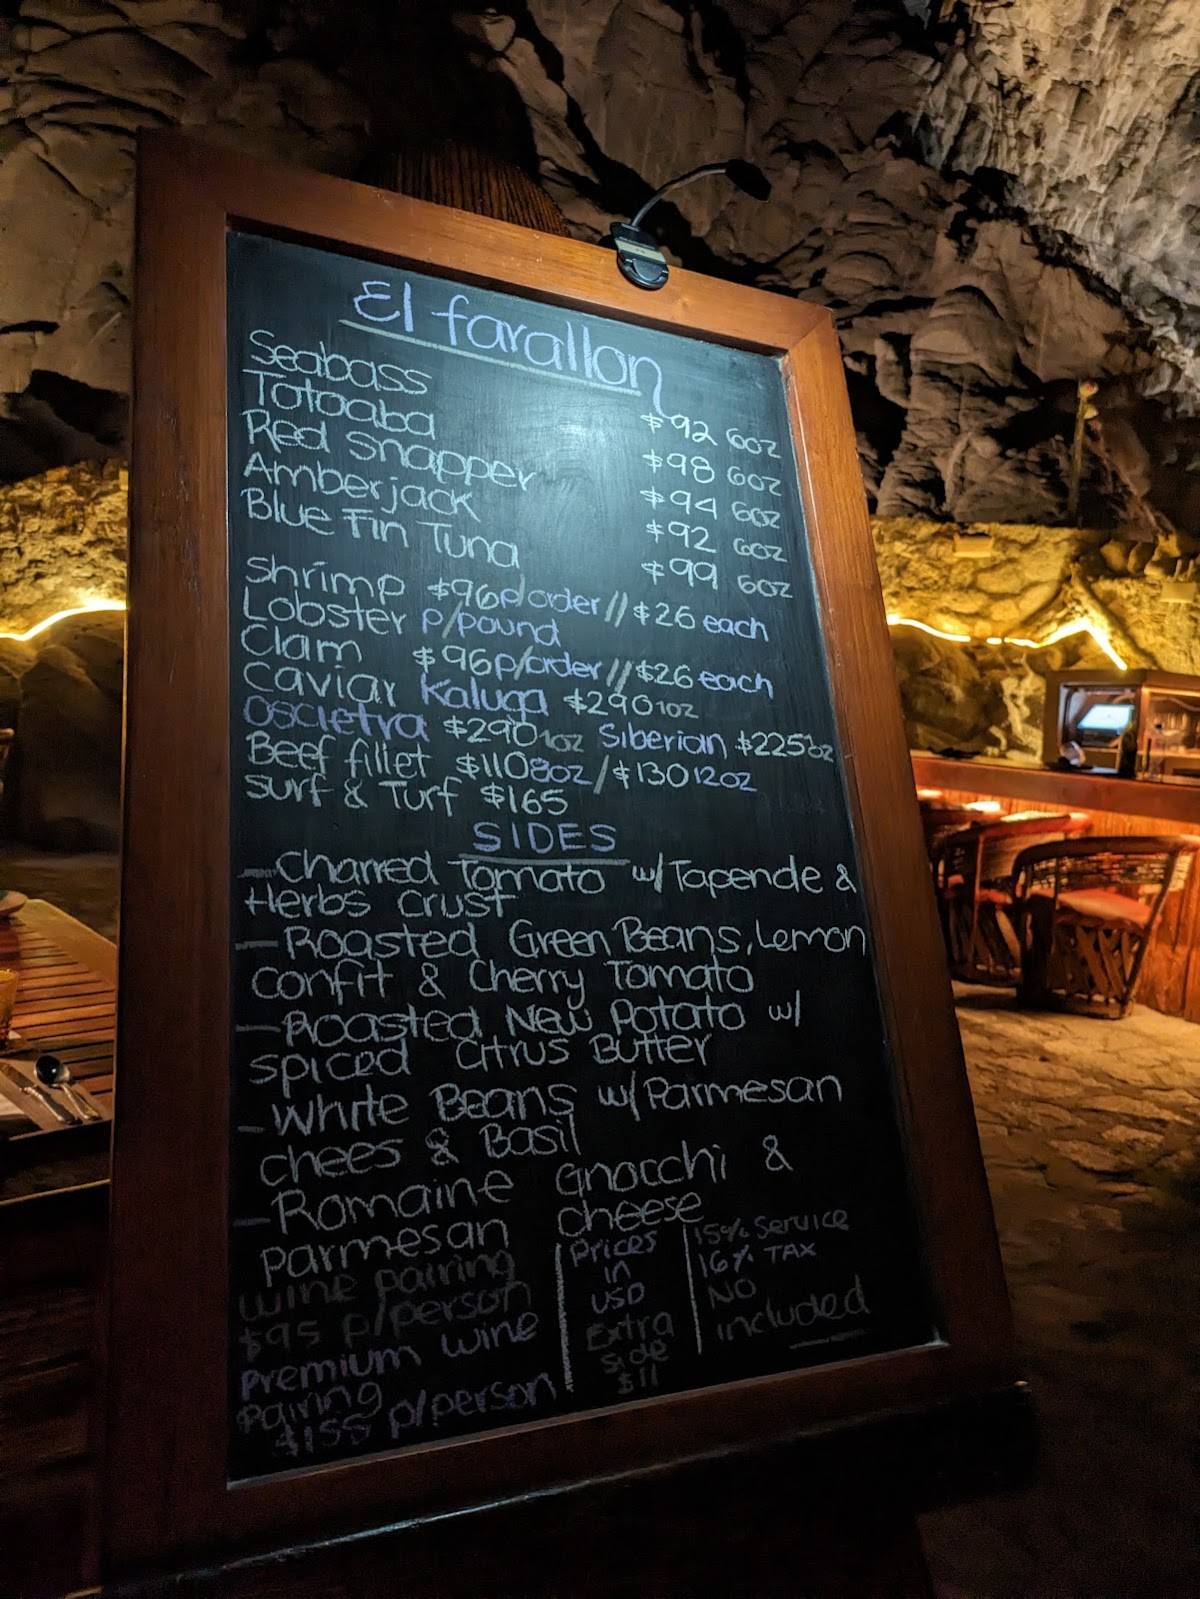 El farallon
Seabass $92 6oz
Totoaba $98 6oz
Red Snapper $94 6oz
Amberjack $92 6oz
Blue Fin Tuna $99 6oz
Shrimp $96 p/order // $26 each
Lobster p/pound
Clam $96 p/order // $26 each
Caviar Kaluga $290 1oz
Oscietra $290 1oz Siberian $225
Beef fillet $110 8oz / $130 12oz
Surf & Turf $165
SIDES
- Charred Tomato w/ Tapende &
Herbs crust
- Roasted Green Beans, Lemon
Confit & Cherry Tomato
- Roasted New Potato w/
spiced Citrus Butter
- White Beans w/ Parmesan
chees & Basil
- Romaine Gnocchi &
parmesan cheese
wine pairing
$95 p/person
Premium wine
Pairing
$155 p/person
Prices
in
USD
Extra
side
$11
15% Service
16% TAX
NO
included